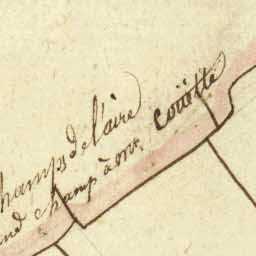 champs de l'aire
champ à mr coüette